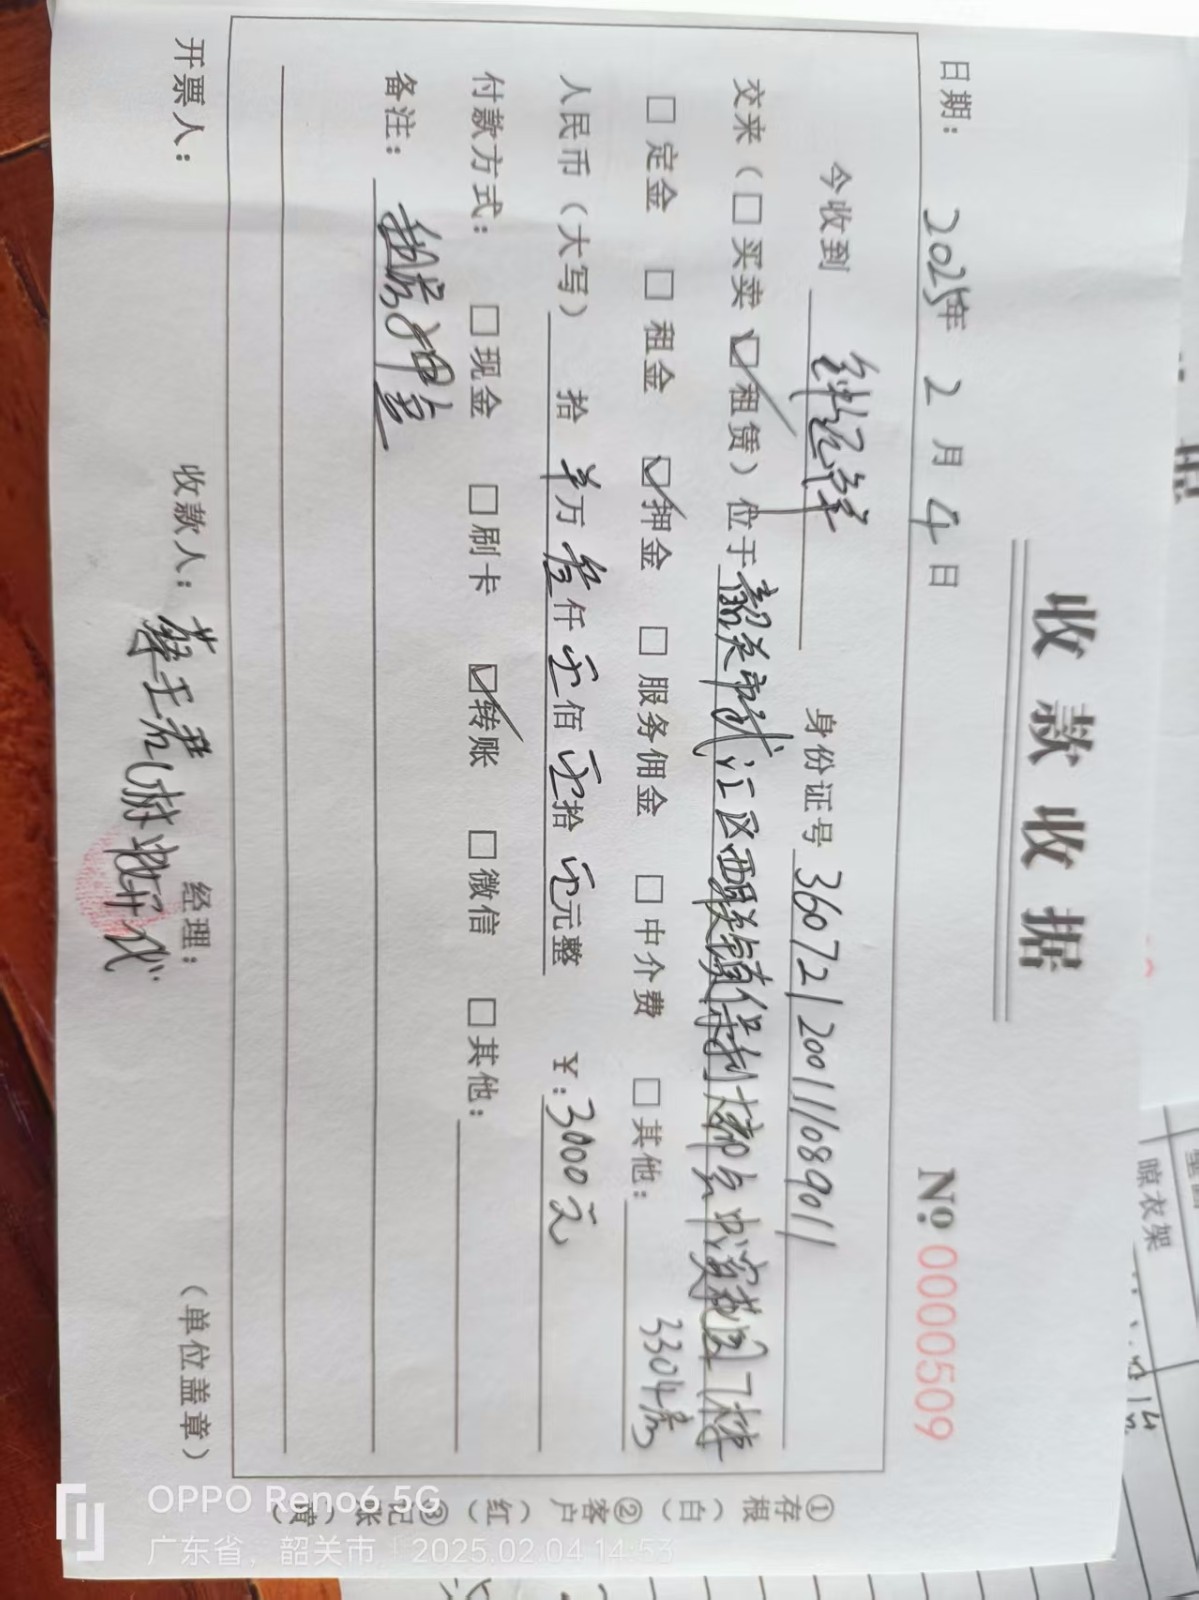 收款收据
No 0000509
日期: 2025年 2 月 4 日
今收到 身份证号 360721200111089011
交来(□买卖 ☑租赁)位于韶关市浈江区 镇保利 花园7栋
3304房
□定金 □租金 ☑押金 □服务佣金 □中介费 □其他:
人民币(大写) 拾 万 叁仟 零佰 零拾 零元整 ¥:3000元
付款方式: □现金 □刷卡 ☑转账 □微信 □其他:
备注: 租房押金
开票人: 收款人: 经理: (单位盖章)
①存根(白) ②客户(红) ③记账(黄)
晾衣架
OPPO Reno6 5G
广东省, 韶关市 2025.02.04 14:53